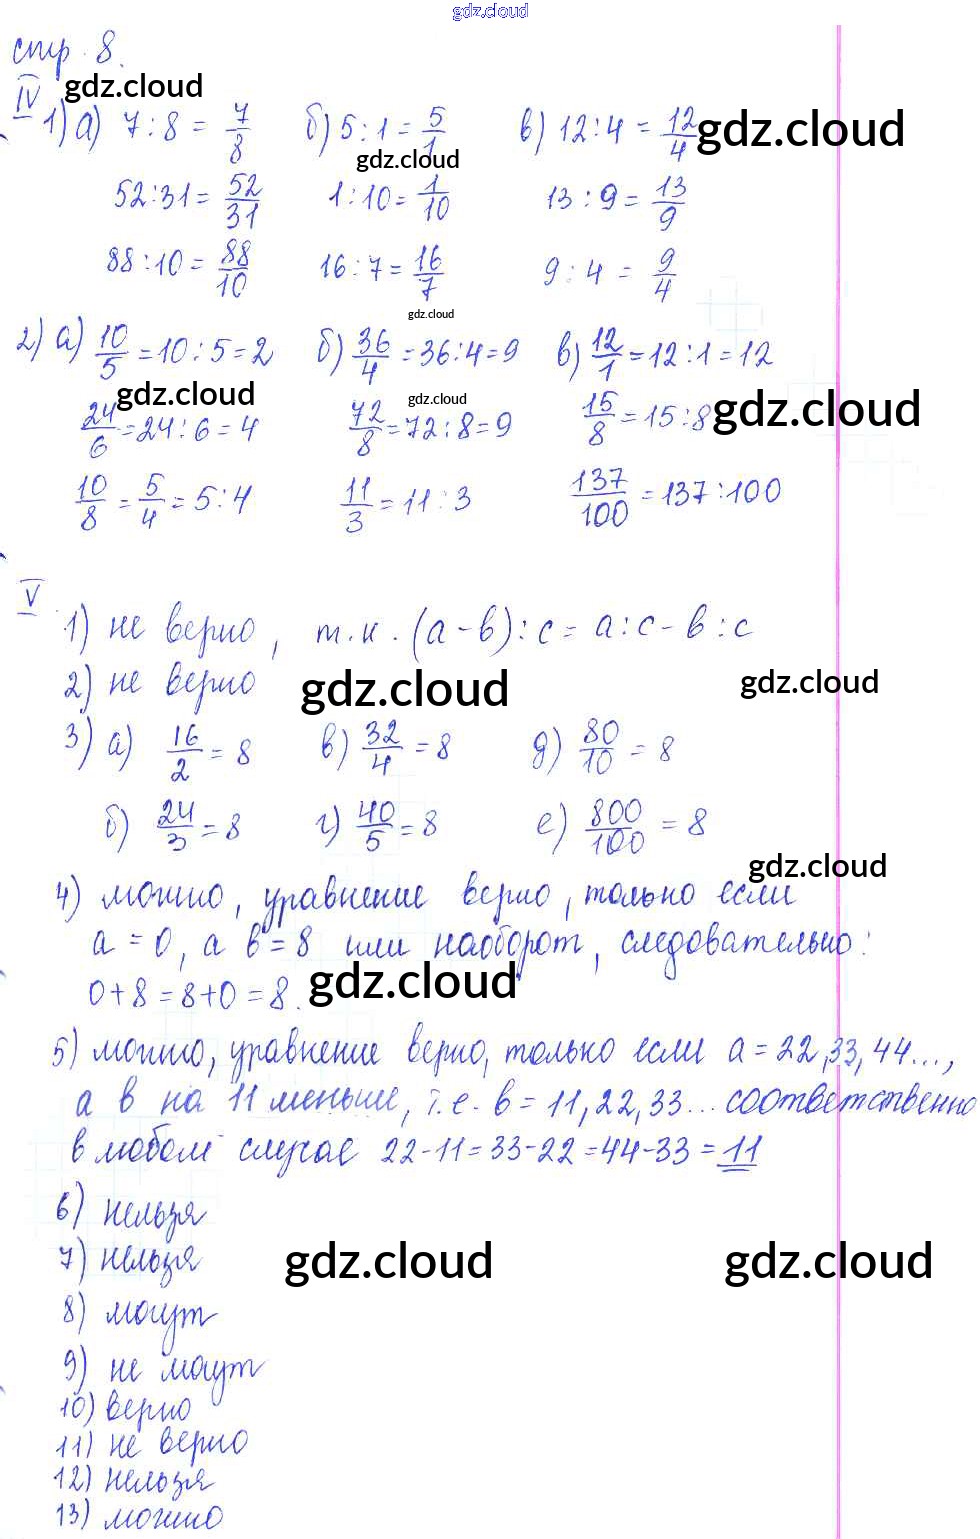 gdz.cloud
стр. 8.
gdz.cloud
IV 1) а) 7 : 8 = 7/8 б) 5 : 1 = 5/1 в) 12 : 4 = 12/4 gdz.cloud
gdz.cloud
52 : 31 = 52/31 1 : 10 = 1/10 13 : 9 = 13/9
88 : 10 = 88/10 16 : 7 = 16/7 9 : 4 = 9/4
gdz.cloud
2) а) 10/5 = 10 : 5 = 2 б) 36/4 = 36 : 4 = 9 в) 12/1 = 12 : 1 = 12
gdz.cloud gdz.cloud gdz.cloud
24/6 = 24 : 6 = 4 72/8 = 72 : 8 = 9 15/8 = 15 : 8
10/8 = 5/4 = 5 : 4 11/3 = 11 : 3 137/100 = 137 : 100
V
1) не верно, т.к. (а - в) : с = а : с - в : с
2) не верно gdz.cloud gdz.cloud
3) а) 16/2 = 8 в) 32/4 = 8 д) 80/10 = 8
б) 24/3 = 8 г) 40/5 = 8 е) 800/100 = 8
gdz.cloud
4) можно, уравнение верно, только если
а = 0, а в = 8 или наоборот, следовательно:
0 + 8 = 8 + 0 = 8. gdz.cloud
5) можно, уравнение верно, только если а = 22, 33, 44...,
а в на 11 меньше, т.е. в = 11, 22, 33... соответственно
в любом случае 22 - 11 = 33 - 22 = 44 - 33 = 11
6) нельзя
7) нельзя gdz.cloud gdz.cloud
8) могут
9) не могут
10) верно
11) не верно
12) нельзя
13) можно